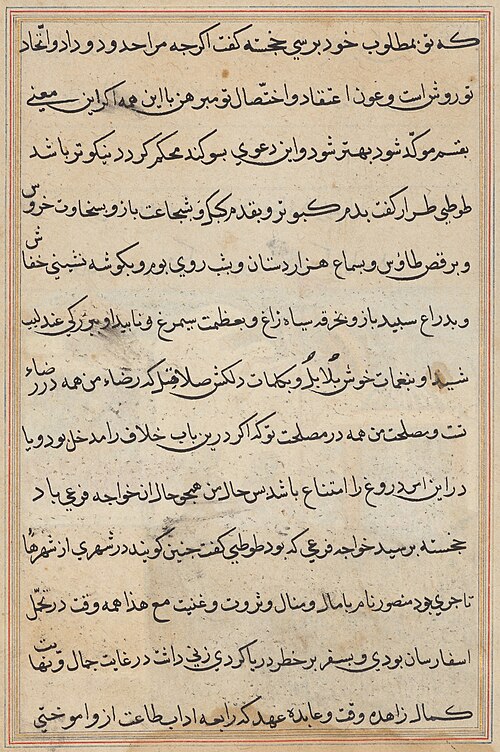 که تو بمطلوب خود برسی خجسته کفت اکرچه مرا حدود وداد و اتحاد
تو روشن است و غون اعتقاد و اختصال تو مبرهن با این همه اکر این معنی
بقسم موکّد شود بهتر شود و این دعوی بسوکند محکم کردد نیکوتر باشد
طوطی طرار کفت بدم کبوتر و بقدم کبک و شجاعت باز و بسخاوت خروس
و برقص طاوس و بسماع هزاردستان و بشب روی بوم و بکوشه نشینی خفاش
و بدراع سپید باز و بخرقه سیاه زاغ و بعظمت سیمرغ و ناپیدا و بزرکی عندلیب
شیدا و بنغمات خوش بلابل و بکلمات دلکش صلاصل که رضاء من همه در رضاء
تست و مصلحت من همه در مصلحت تو که اکر درین باب خلاف را مدخل بود و یا
در این امر دروغ را امتناع باشد پس حال من همچو حال ان خواجه فرعی باد
خجسته پرسید خواجه فرعی که بود طوطی کفت چنین کویند در شهری از شهرها
تاجری بود منصور نام با مال و منال و ثروت و غنیت مع هذا همه وقت در تحمّل
اسفار سان بودی و بسفر پر خطر دریا کردی زنی داشت در غایت جمال و نهایت
کمال زاهده وقت و عابده عهد که رابعه اداب طاعت از و اموختی